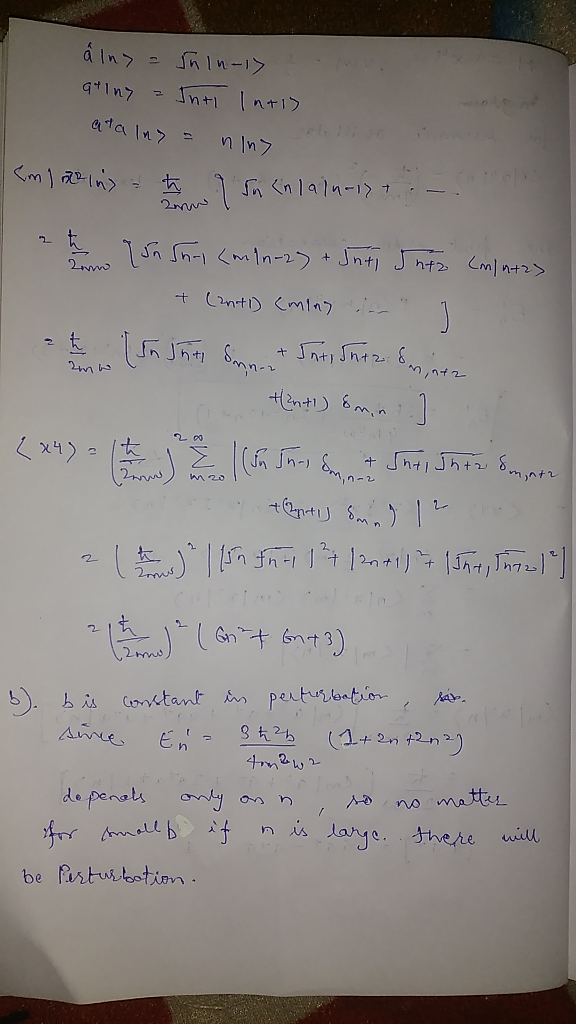 â|n> = √n |n-1>
a⁺|n> = √n+1 |n+1>
a⁺a |n> = n |n>
<m| x² |n> = ħ/2mω [ √n <n|a|n-1> + . ---
= ħ/2mω [ √n √n-1 <m|n-2> + √n+1 √n+2 <m|n+2>
+ (2n+1) <m|n> ... ]
= ħ/2mω [ √n √n+1 δm,n-2 + √n+1 √n+2 δm,n+2
+(2n+1) δm,n ]
<x4> = (ħ/2mω)² ∞Σm=0 |(√n √n-1 δm,n-2 + √n+1 √n+2 δm,n+2
+(2n+1) δmn) |²
= (ħ/2mω)² | |√n √n-1 |² + |2n+1|² + |√n+1 √n+2|² ]
= (ħ/2mω)² (6n² + 6n+3)
b). b is constant in perturbation ,
since En' = 3ħ²b/4m²ω² (1+2n+2n²)
depends only on n , so no matter
for small b if n is large. there will
be Perturbation.